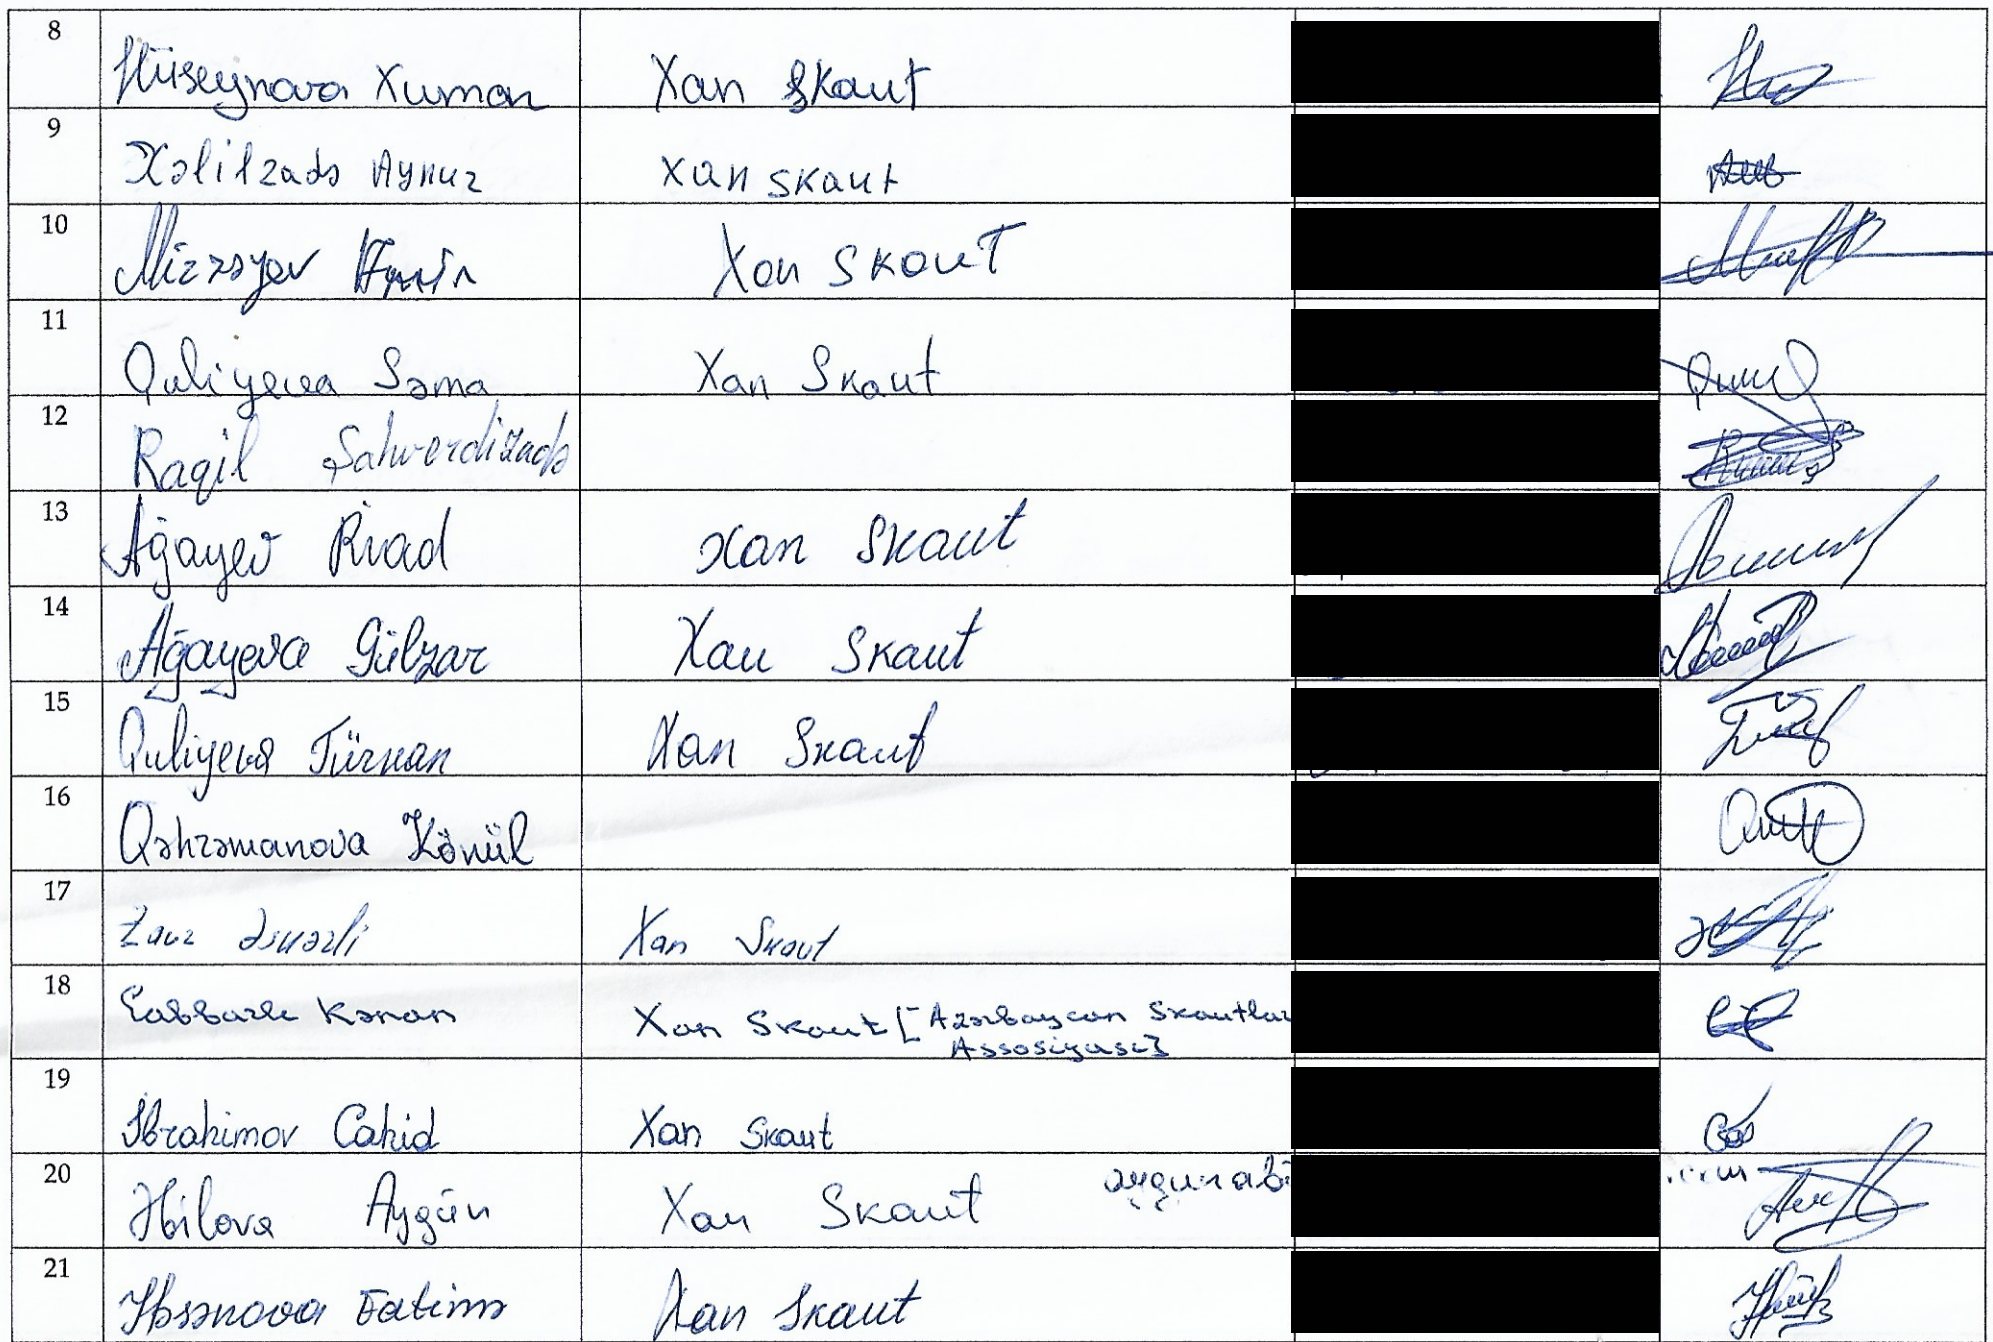 8 Hüseynova Xuman Xan Skaut
9 Xəlilzadə Aynur Xan Skaut
10 Mirzəyev Xan Skaut
11 Quliyeva Səma Xan Skaut
12 Raqil Şahverdizadə
13 Ağayev Riad Xan Skaut
14 Ağayeva Gülzar Xan Skaut
15 Quliyeva Türkan Xan Skaut
16 Qəhrəmanova Könül
17 Zaur Əsgərli Xan Skaut
18 Cabbarlı Kənan Xan Skaut [Azərbaycan Skautlar
Assosiyası]
19 İbrahimov Cahid Xan Skaut
20 Aygün Xan Skaut
21 Həsənova Fatimə Xan Skaut